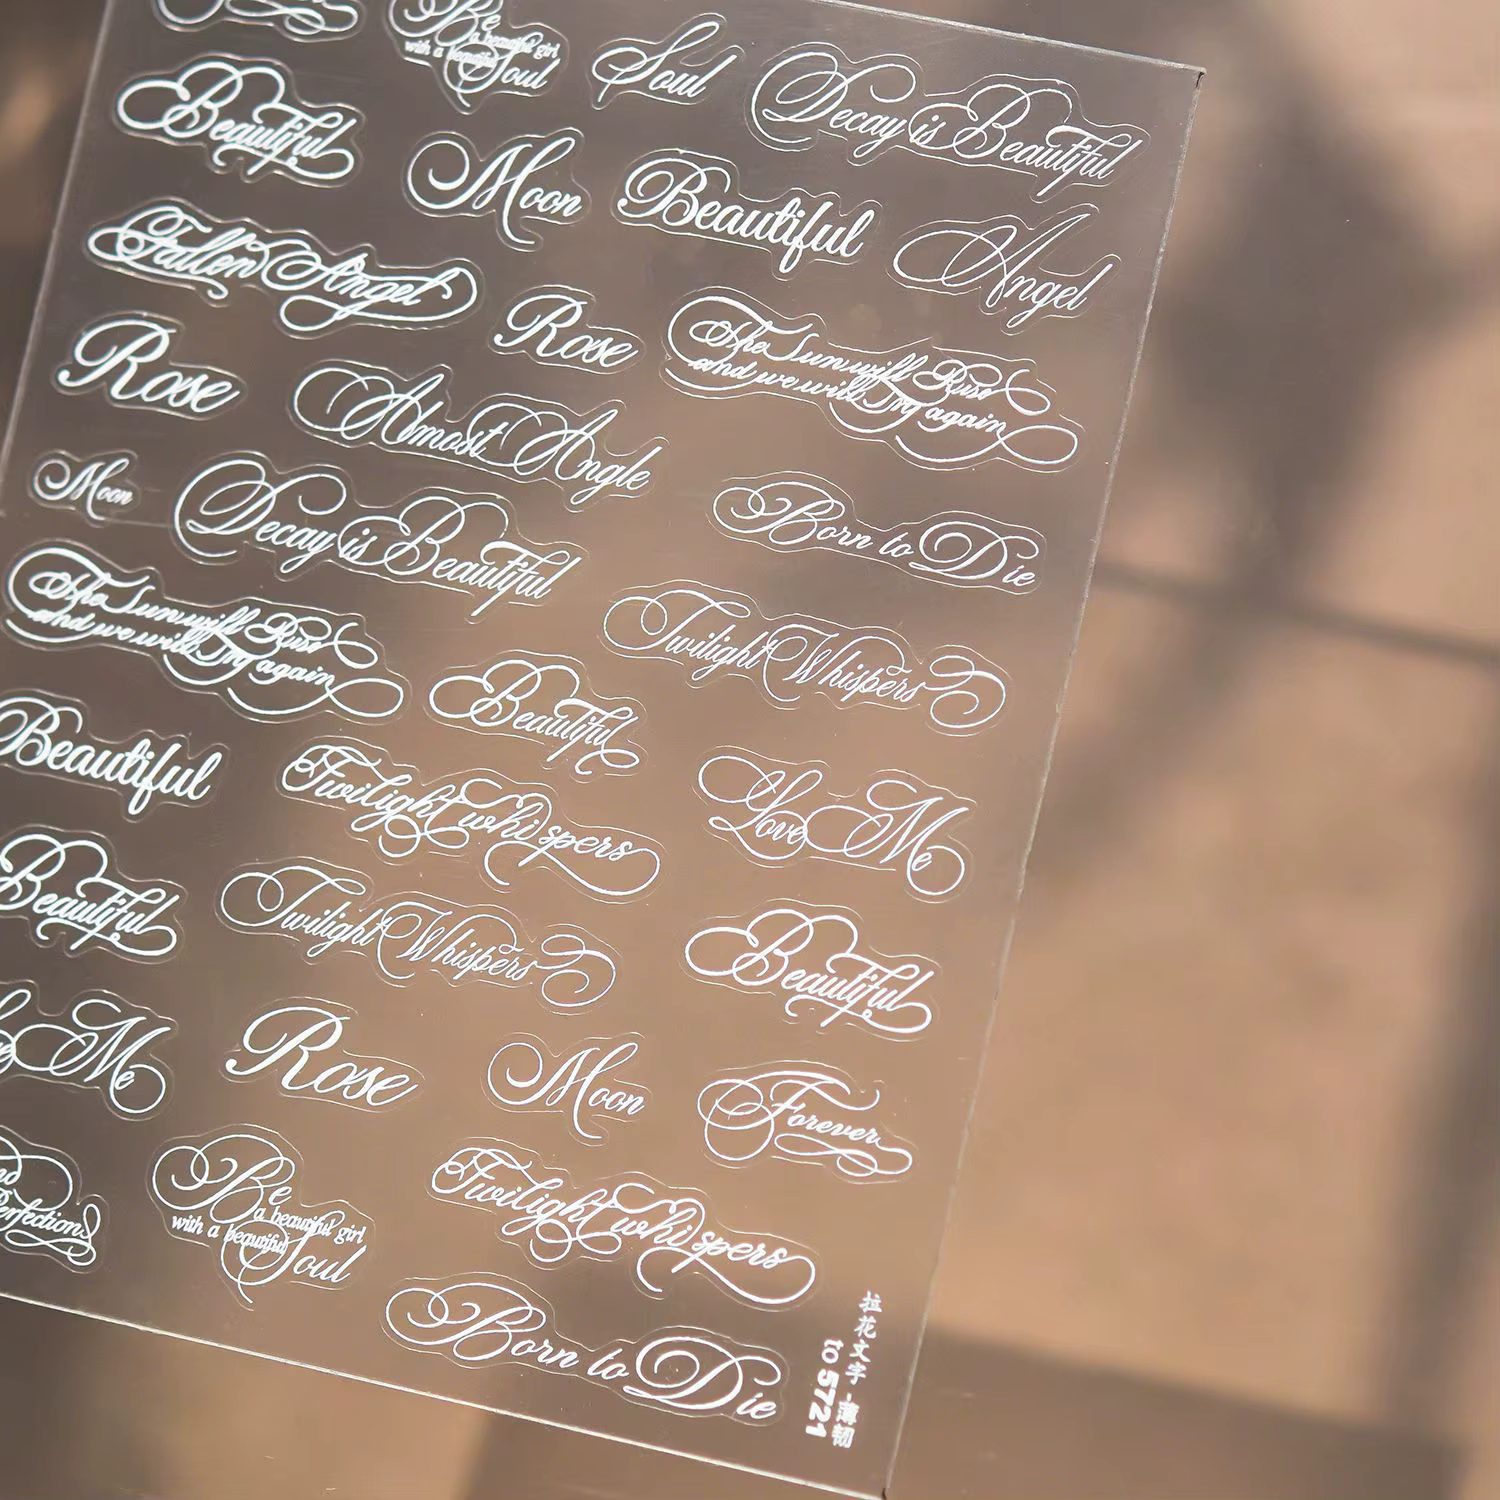 Be
a beautiful girl
with a beautiful
Soul
Soul
Decay is Beautiful
Beautiful
Moon
Beautiful
Angel
Fallen Angel
Rose
The Sun will Rise
and we will Try again
Rose
Almost Angle
Born to Die
Moon
Decay is Beautiful
Twilight Whispers
The Sun will Rise
and we will Try again
Beautiful
Love Me
Beautiful
Twilight whispers
Beautiful
Beautiful
Twilight Whispers
Me
Rose
Moon
Forever
Perfection
Be
a beautiful girl
with a beautiful
Soul
Twilight whispers
Born to Die
拉花文字-薄韧
to 5721